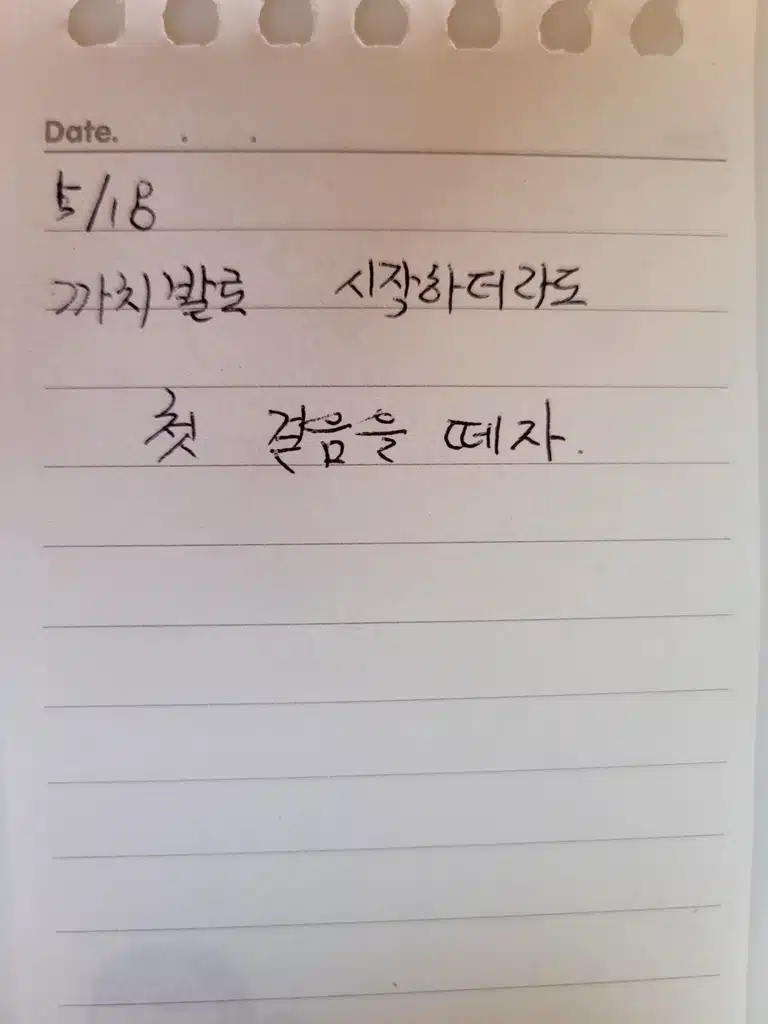 Date. . .
5/18
까치발로 시작하더라도
첫 걸음을 떼자.